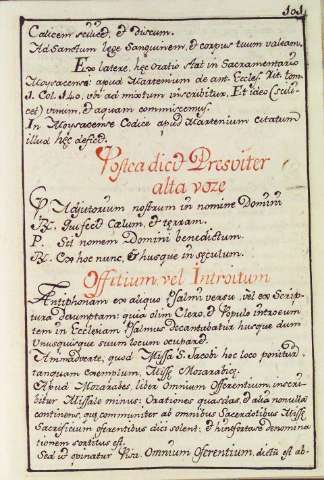 101
Calicem scilicet, et discum.
Ad Sanctum lege Sanguinem, et corpus tuum valeam.
Ex latere, hęc oratio stat in Sacramentario
Moysacense: apud Martenium de ant. Eccles. Rit. tom.
1. Col. 540. ubi ad mixtum inscribitur. Et ideo (scili-
cet) vinum, et aquam commiscemus.
In Moysacense Codice apud Martenium citatum
illud hęc deficit.
Postea dicet Presviter
alta voze
Adjutorium nostrum in nomine Domini
R. Qui fecit Cælum, et terram.
P. Sit nomem Domini benedictum.
R. Ex hoc nunc, et husque in sęculum.
Offitium, vel Introitum
Antiphonam ex aliquo Psalmi versu, vel ex Scrip-
tura Derumptam: quia olim Clero, et Populo introeum
tem in Eccleiam Psalmus Decantabatur husque dum
Vnusquisque suum locum ocupard.
Animadverte, quod Missa S. Jacobi hoc loco ponitur
tanquam exemplum, Missę Mozarabicę.
Apud Mozarabes, liber Omnium Offerentium, inscri-
bitur Missale minus: Orationes quasdas, et alia nonnulla
continens, quę communiter ab omnibus Sacerdotibus Missę
Sacrificium oferentibus dici solent; et hinc forta se denomina
tionem sortitus est.
Sed ut opinatur Omnium Oferentium, dictu est ab-